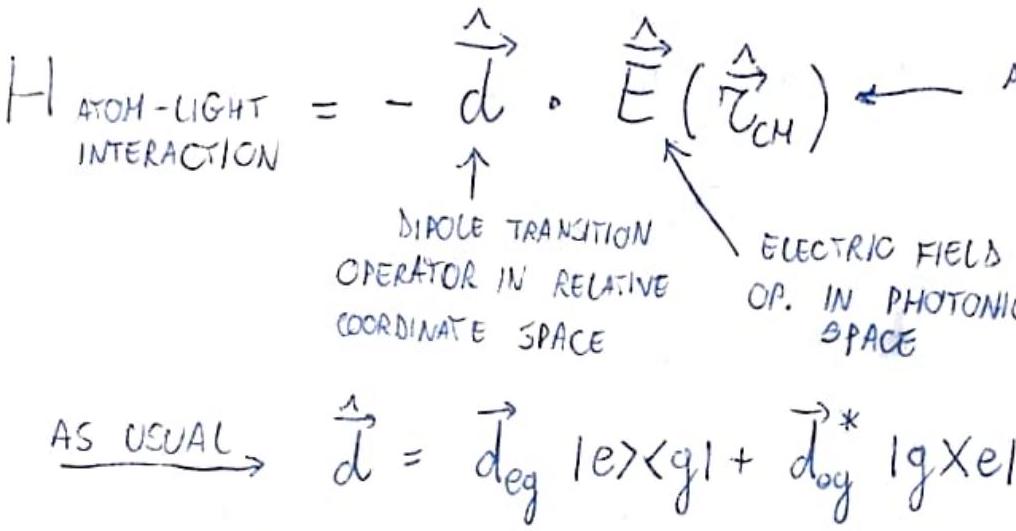 H ATOM-LIGHT INTERACTION = - \hat{\vec{d}} · \hat{\vec{E}} (\hat{\vec{r}}_{CM}) ← A
↑
DIPOLE TRANSITION
OPERATOR IN RELATIVE
COORDINATE SPACE
ELECTRIC FIELD
OP. IN PHOTONIC
SPACE
AS USUAL → \hat{\vec{d}} = \vec{d}_{eg} |e><g| + \vec{d}_{eg}^* |g><e|